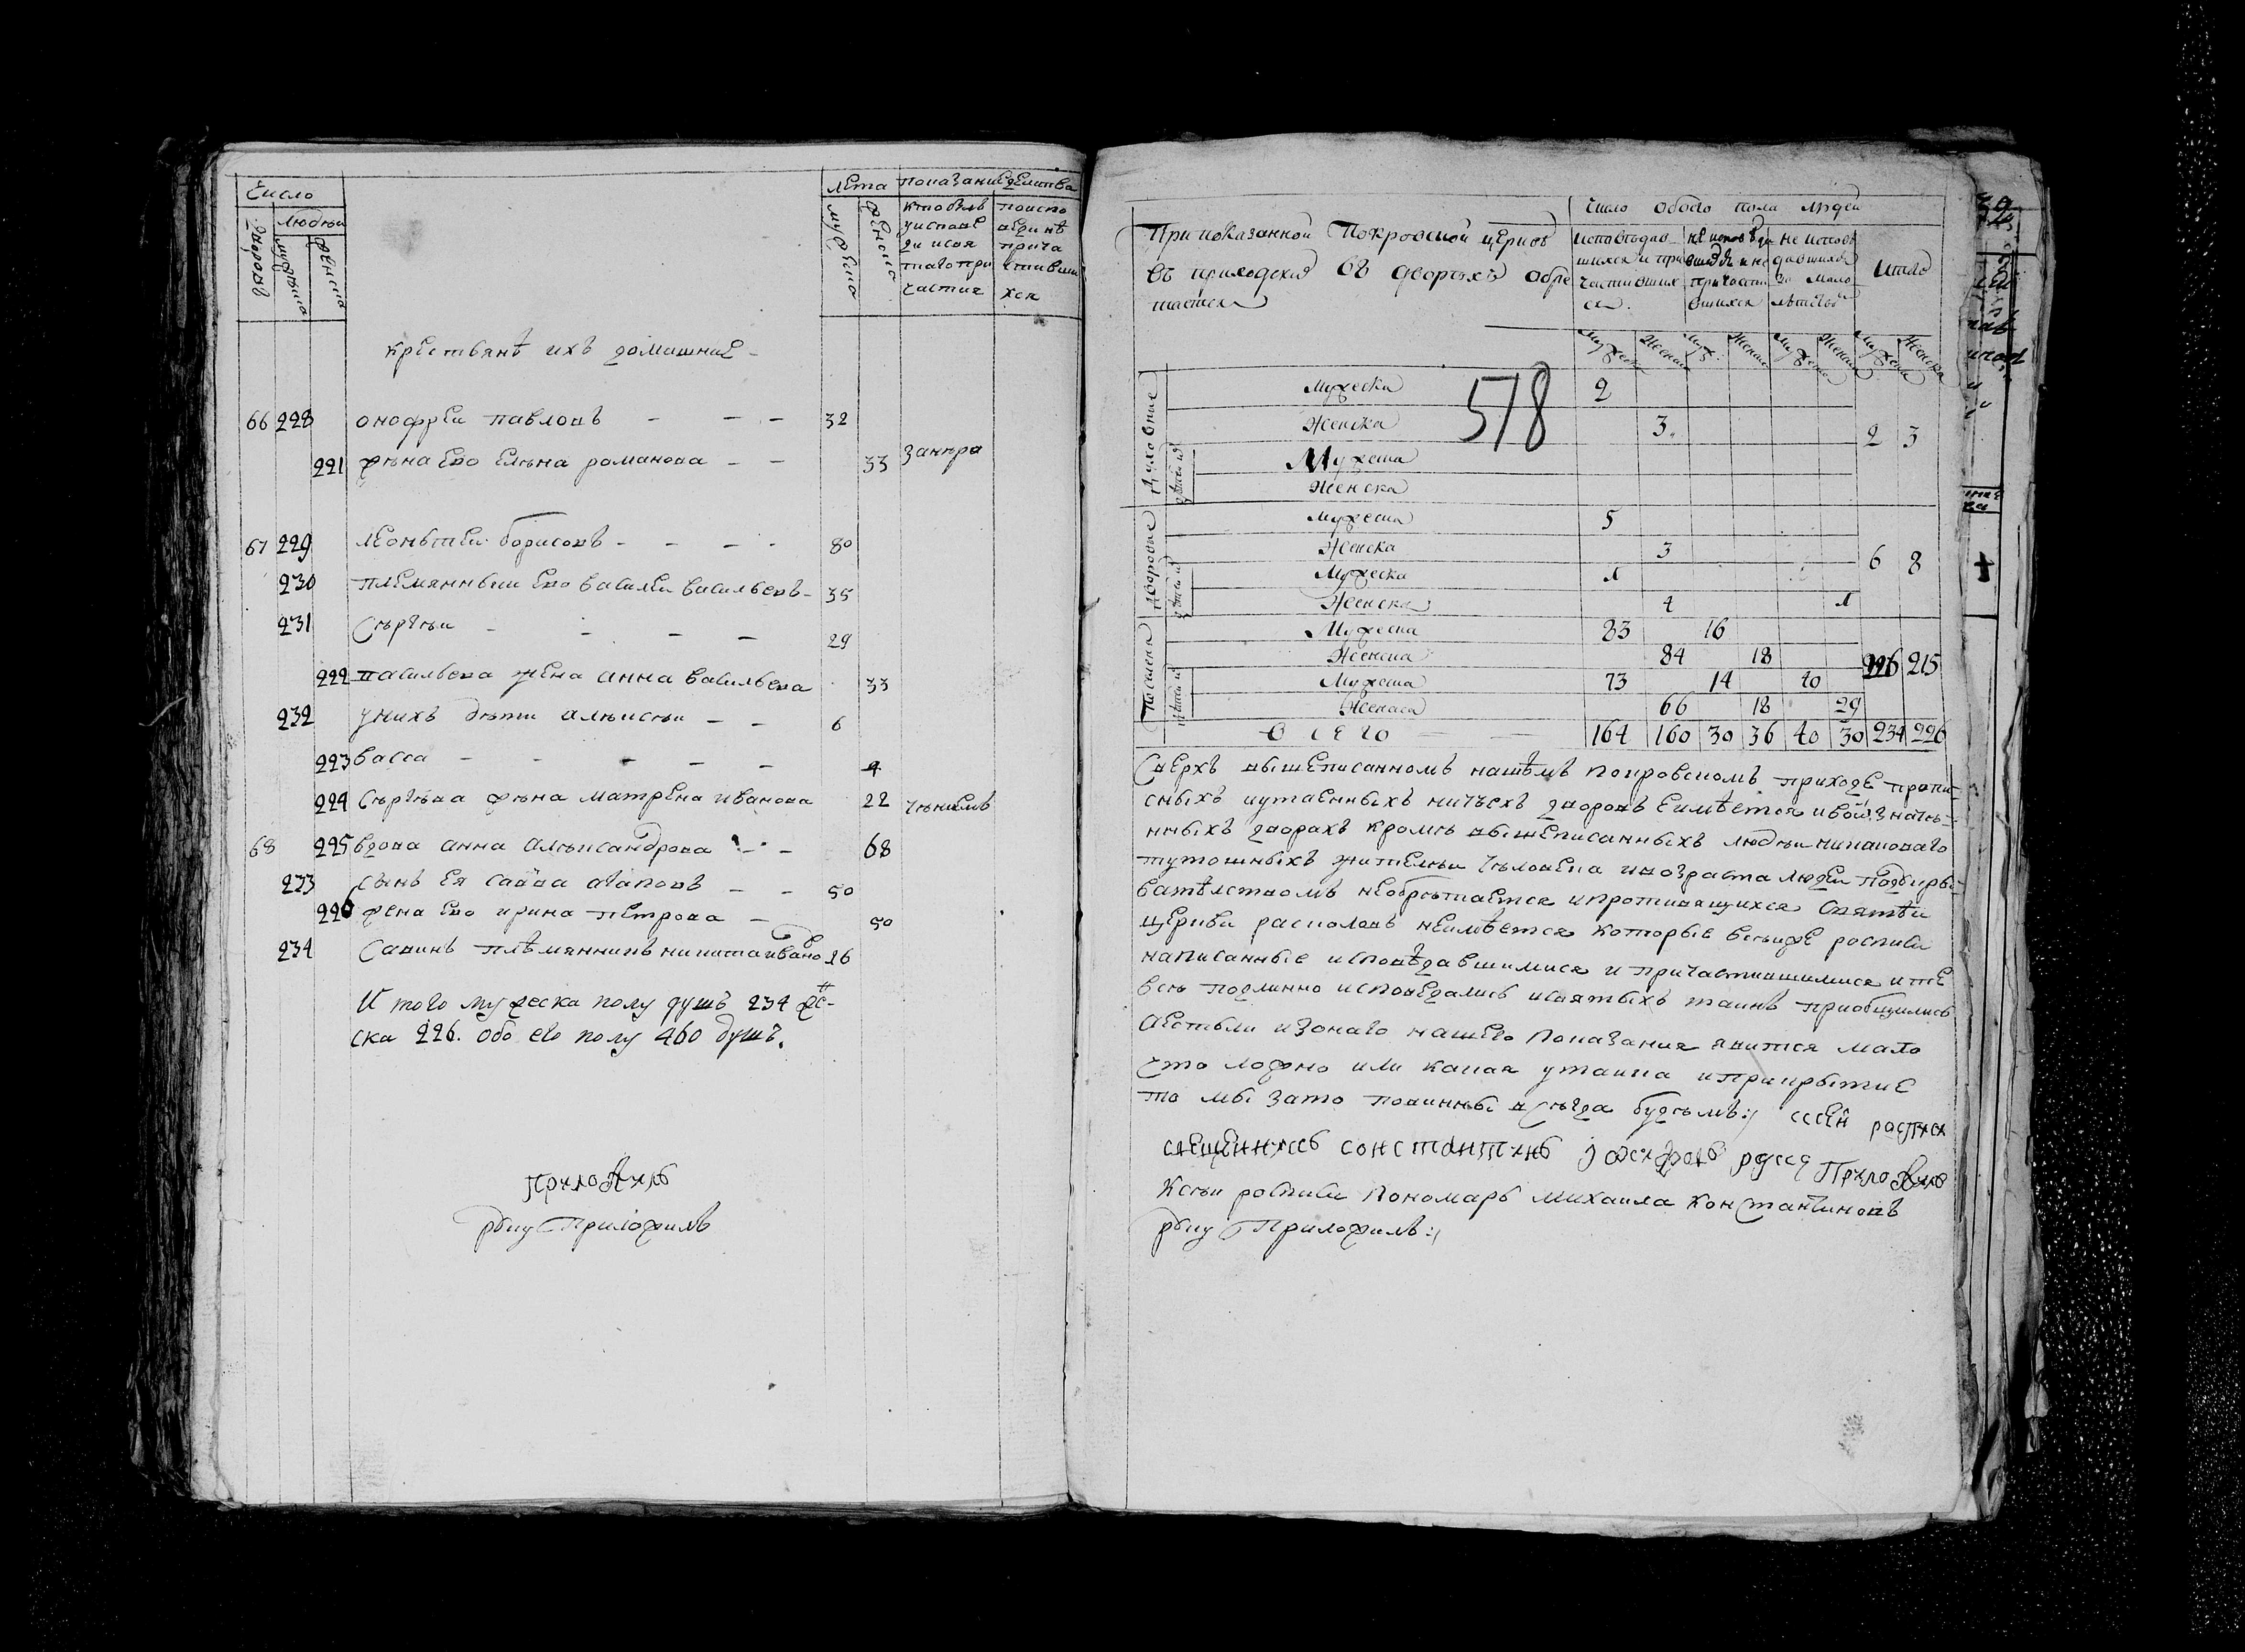 Число
Людеи
Дворовъ
мужеска
женска
Лета
мужеска
женска
показание действа
кто былъ
у исповѣ
ди и свя
таго при
частия
по испо
веди не
прича
стивши
хся
крествянѣ ихъ домашние
66 228 онофреи павловъ 32
221 жѣна ево елѣна романова 33
67 229 леоньтеи борисовъ 80
230 племянныки ево василеи васильевъ 35
231 Сѣргѣи 29
222 васильева жена анна васильева 33
232 у нихъ дѣти алѣксѣи 6
223 васса 4
224 Сѣргѣева жѣна матрена иванова 22
68 225 вдова анна алѣксандрова 68
233 сынъ ея савва агаповъ 50
226 жена ево ирина петрова 50
234 Савинъ плѣмянникъ никита иваново 26
И того мужеска полу душъ 234 жен-
ска 226. обоего полу 460 душъ.
приложилъ
руку приложилъ
При показанной Покровской церкви
въ приходскихъ въ дворѣхъ обре
тается
Число обоего пола людей
исповѣдав-
шихся и при
частивших
ся.
не исповѣда
вшихся и не
причасти
вшихся
не исповѣ
давшихся
за мало
лѣтсвом
итого
Мужеска Женска Муж: Женска Мужеска Женска Мужеска Женска
Духовные
Мужеска 2
578
Женска 3.
2 3
Мужеска
Женска
Дворовые
Мужеска 5
Женска 3
6 8
Мужеска 1
Женска 4 1
Поселяня
Мужеска 83 16
Женска 84 18
226 215
Мужеска 73 14 40
Женска 66 18 29
Всего 164 160 30 36 40 30 234 226
Сверхъ вышеписанномъ нашѣмъ покровскомъ приходе пропи-
сныхъ и утаенныхъ ничьехъ дворовъ еимѣется и вой значѣ-
нныхъ дворахъ кромѣ вышеписанныхъ людѣи никаковаго
тутошныхъ жителѣи чѣловека и возраста людеи подкиры-
ватѣлством необрѣтается и противящихся святѣи
церкви расколовъ неимѣется которые в сѣиже росписи
написанные исповѣдавшимися и причастившимися и те
всѣ подлинно исповедались и святыхъ таинъ приобщились
аестьли изонаго нашего показания явится мало
что ложно или какая утаика и прикрытие
то мы зато повинны всѣгда будемъ:/ ксеи росписи
священникъ константинъ руку приложилъ
К сеи росписи пономарь михаила константиновъ
руку приложилъ:/